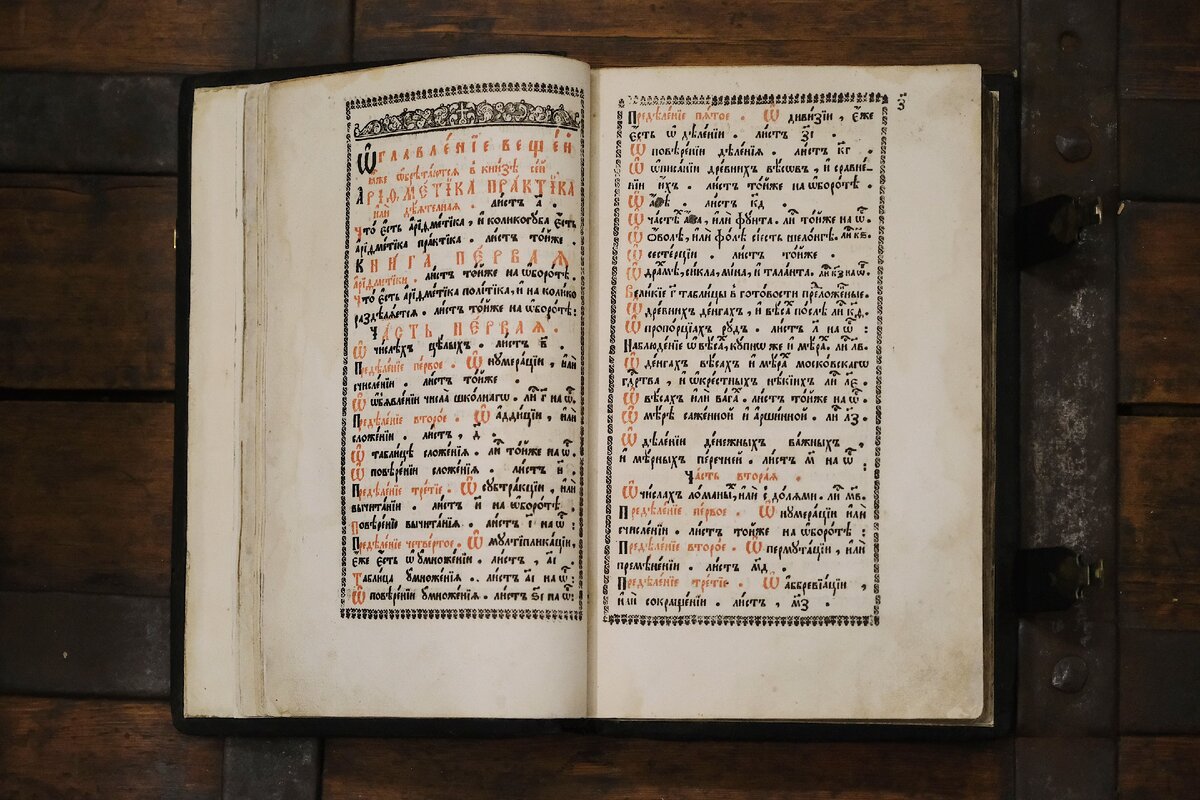 Ѡ҆главле́нїе веще́й
ꙗ҆̀же ѡ҆брѣта́ются в̾ кни́зѣ се́й
А҆рїѳме́тїка пра́ктїка
и҆лѝ дѣ́ятелная . ли́стъ а҃ .
Что̀ є҆́сть а҆рїѳме́тїка, и҆ коликогꙋ́ба є҆́сть
а҆рїѳме́тїка пра́ктїка . ли́стъ то́йже .
Кни́га, пе́рваѧ
а҆рїѳме́тїки . ли́стъ то́йже на ѡ҆боро́тѣ .
Что̀ є҆́сть а҆рїѳме́тїка полі́тїка, и҆ на коли́ко
раздѣлѧ́ется . ли́стъ то́йже на ѡ҆боро́тѣ :
Ча́сть пе́рваѧ .
Ѡ҆ чи́слѣхъ цѣ́лыхъ . ли́стъ в҃ .
Предѣле́нїе пе́рвое . Ѡ҆ нꙋмера́цїи , и҆лѝ
счисле́нїи . ли́стъ то́йже .
Ѡ҆ ѡ҆б̾явле́нїи числа̀ шко́лнагѡ . ли́ г҃ на ѡ҆ .
Предѣле́нїе второ́е . Ѡ҆ а҆дди́цїи , и҆лѝ
сложе́нїи . ли́стъ , д҃ .
Ѡ҆ табли́цѣ сложе́нїѧ . ли́ то́йже на ѡ҆ .
Ѡ҆ повѣре́нїи сложе́нїѧ . ли́стъ и҃ .
Предѣле́нїе тре́тїе . Ѡ҆ сꙋбтра́кцїи , и҆лѝ
вычита́нїи . ли́стъ и҃ на ѡ҆боро́тѣ .
Повѣре́нїе вычита́нїѧ . ли́стъ і҃ на ѡ҆ :
Предѣле́нїе четве́ртое . Ѡ҆ мꙋлтїплїка́цїи ,
є҆́же є҆́сть ѡ҆ ᲂу҆множе́нїи . ли́стъ , а҃і .
Табли́ца ᲂу҆множе́нїѧ . ли́стъ а҃і на ѡ҆ :
Ѡ҆ повѣре́нїи ᲂу҆множе́нїѧ . ли́стъ ѕ҃і на ѡ҆ :
з҃
Предѣле́нїе пѧ́тое . Ѡ҆ диви́зїи , є҆́же
є҆́сть ѡ҆ дѣле́нїи . ли́стъ з҃і .
Ѡ҆ повѣре́нїи дѣле́нїѧ . ли́стъ к҃г .
Ѡ҆ ѡ҆писа́нїи дре́внихъ вѣсѡ́въ , и҆ сравне́-
нїи и҆́хъ . ли́стъ то́йже на ѡ҆боро́тѣ .
Ѡ҆ ли́стъ к҃д .
Ѡ҆ ча́стѣ и҆лѝ фꙋ́нта . ли́ то́йже на ѡ҆ .
Ѡ҆ ѻ҆во́лѣ, и҆лѝ фо́лѣ си́єсть шело́нгѣ . ли́ к҃в .
Ѡ҆ сесте́рцїи . ли́стъ то́йже .
Ѡ҆ дра́хмѣ, сі́кла, мі́на, и҆ тала́нта . ли́ к҃з на ѡ҆ .
Вели́кїе г҃ табли́цы в̾ гото́вости приложе́нные .
Ѡ҆ дре́внихъ де́нгахъ , и҆ вѣ́са по́слѣ ли́ к҃д .
Ѡ҆ пропо́рцїахъ рꙋ́дъ . ли́стъ л҃ на ѡ҆ :
Наблюде́нїе ѡ҆ вѣ́са, кꙋ́пнѡ же и҆ мѣ́ра . ли́ л҃в .
Ѡ҆ де́нгахъ вѣ́сахъ и҆ мѣ́ра моско́вскагѡ
гдⷭ҇рства , и҆ ѡ҆кре́стныхъ нѣ́кїихъ ли́ л҃є .
Ѡ҆ вѣ́сахъ и҆лѝ ва́га . ли́стъ то́йже на ѡ҆ .
Ѡ҆ мѣ́рѣ саже́нной и҆ а҆рши́нной . ли́ л҃з .
Ѡ҆ дѣле́нїи де́нежныхъ ва́жныхъ ,
и҆ мѣ́рныхъ пе́речней . ли́стъ м҃ на ѡ҆ :
Ча́сть втора́ѧ .
Ѡ҆ чи́слахъ ло́маныхъ, и҆лѝ с̾ до́лѧми . ли́ м҃в .
Предѣле́нїе пе́рвое . Ѡ҆ нꙋмера́цїи и҆лѝ
счисле́нїи . ли́стъ то́йже на ѡ҆боро́тѣ :
Предѣле́нїе второ́е . Ѡ҆ пермꙋта́цїи , и҆лѝ
премѣне́нїи . ли́стъ м҃д .
Предѣле́нїе тре́тїе . Ѡ҆ а҆ббревїа́цїи ,
и҆лѝ сокраще́нїи . ли́стъ , м҃з .